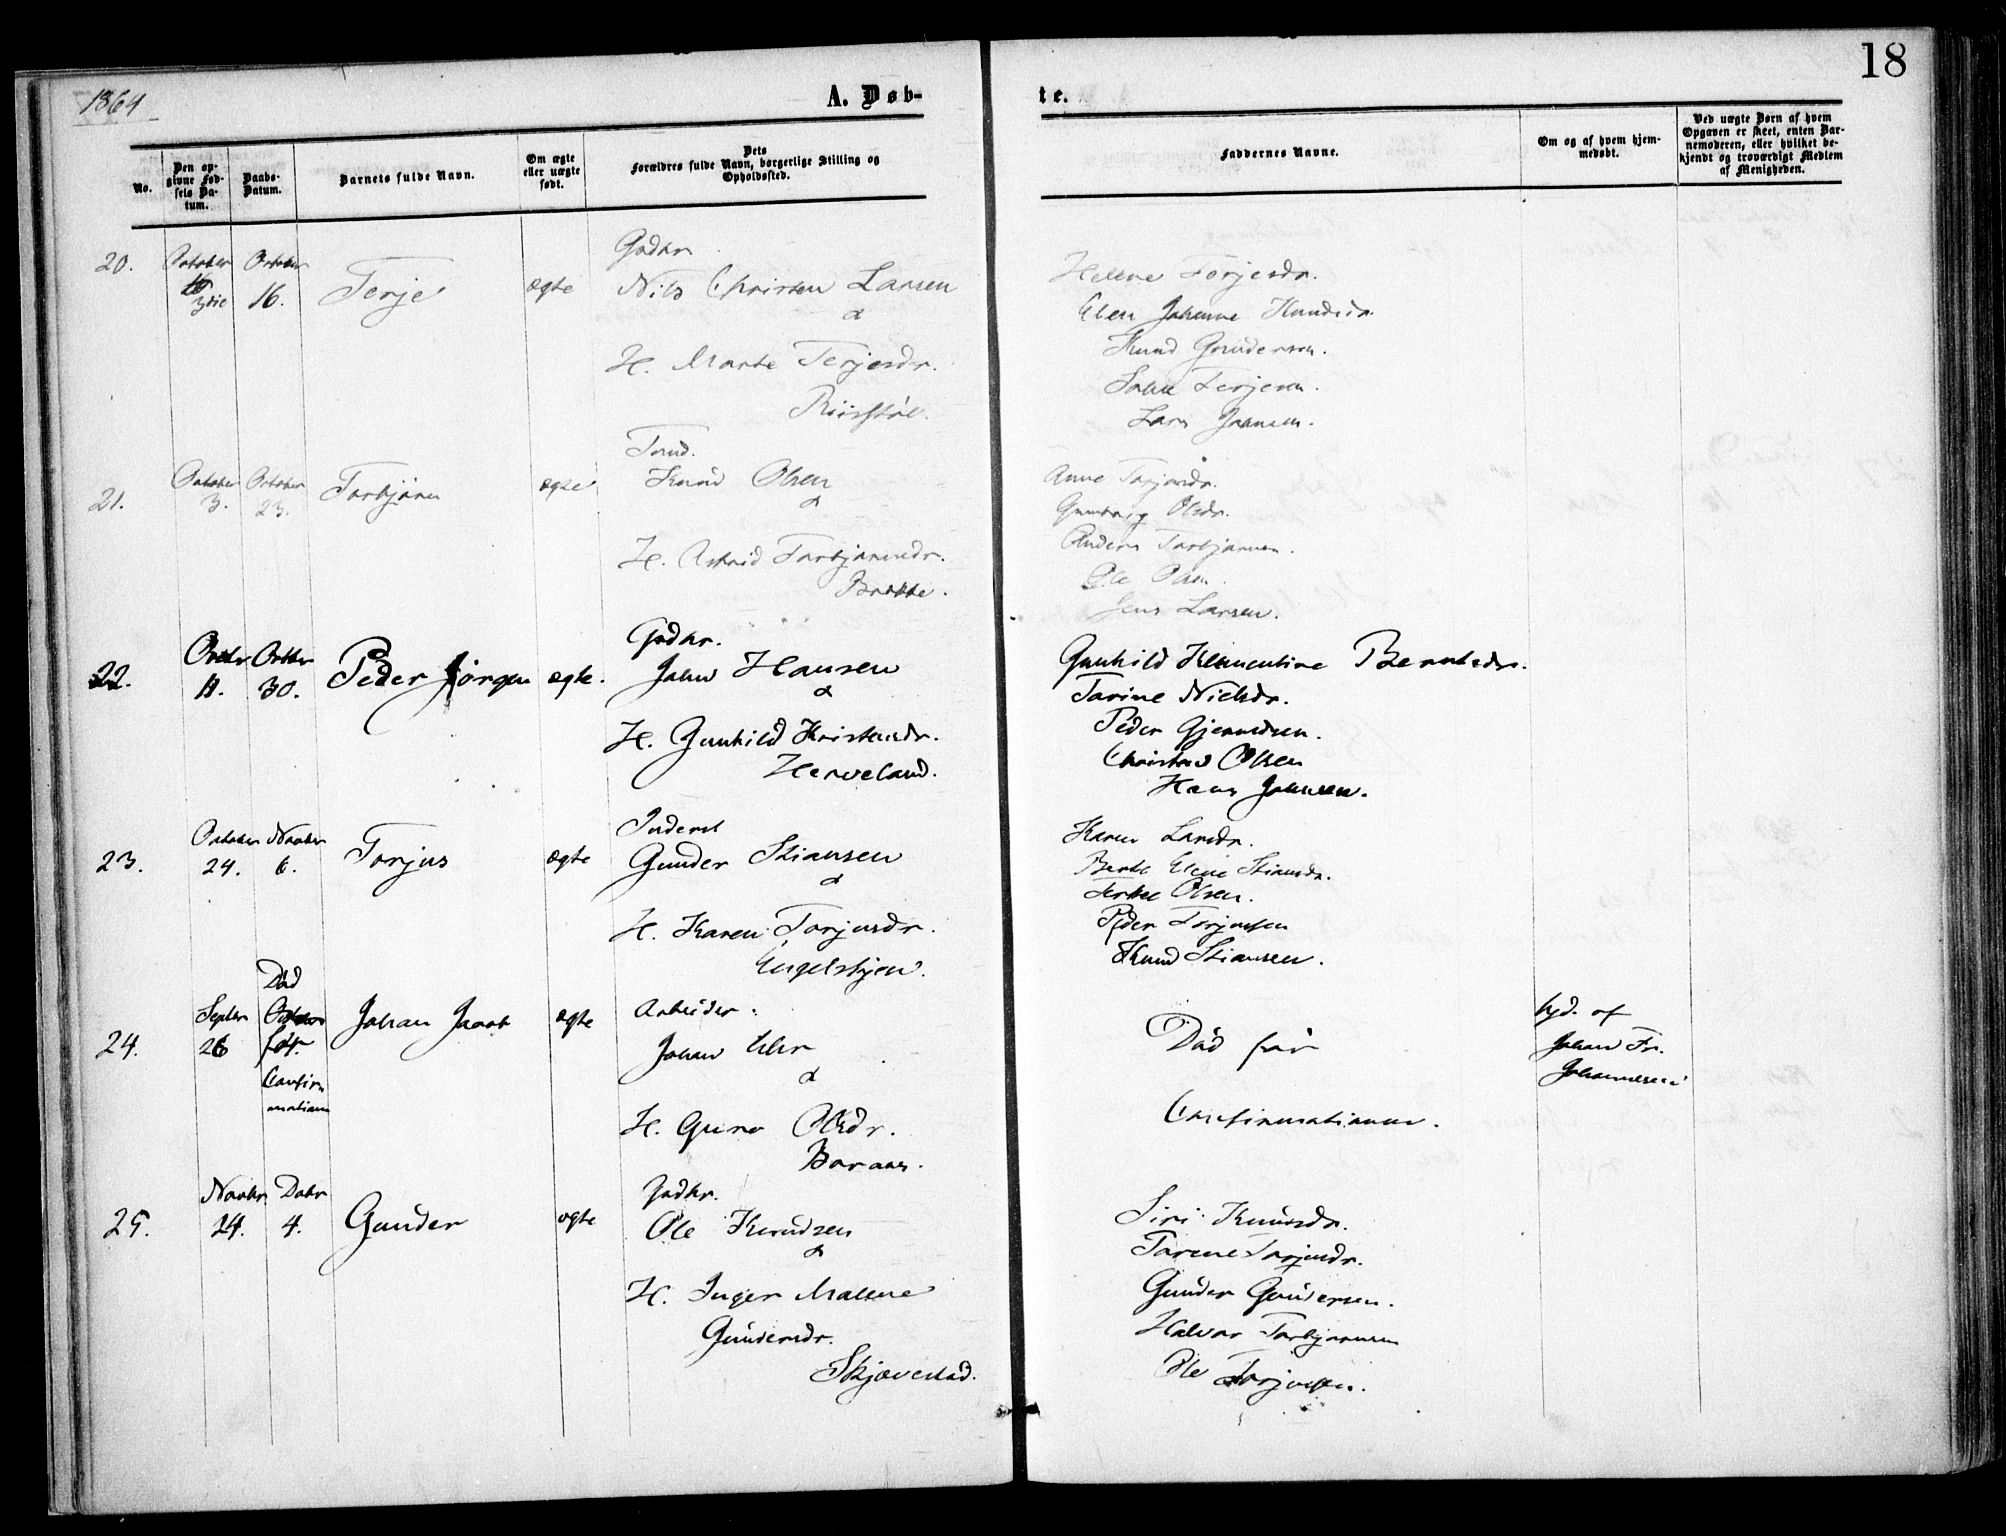 18
1864
A. Døb-
te.
No.
Den op-
givne Fød-
sels Da-
tum.
Daabs-
Datum.
Barnets fulde Navn.
Om ægte
eller uægte
født.
Dets
Forældres fulde Navn, borgerlige Stilling og
Opholdssted.
Faddernes Navne.
Om og af hvem hjem-
medøbt.
Ved uægte Børn af hvem
Opgaven er skeet, enten Bar-
nemoderen, eller hvilket be-
kjendt og troværdigt Medlem
af Menigheden.
20.
October
3die
October
16.
Terje
ægte
Gadbr
Nils Christen Larsen
&
H. Marte Terjesdr.
Helene Terjesdr.
Elen Johanne Knudsdr.
Knud Gundersen.
Terjesen.
Lars Jansen.
21.
October
3.
October
23.
Torbjørn
ægte
Knud Olsen
&
H. Astrid Torbjørnsdr.
Brække.
Anne Torjusdr.
Olsdr.
Anders Torbjørnsen.
Ole Olsen.
Jens Larsen.
22.
Octbr
11.
Octbr
30.
Peder Jørgen
ægte.
Gadbr.
John Hansen
&
H. Gunhild Kristensdr.
Herveland.
Gunhild Klementine Berntsdr.
Tarine Nielsdr.
Peder Gjermundsen.
Christen Olsen
Hans Johnsen.
23.
October
24.
Novber
6.
Torjus
ægte
Inderst
Gunder Stiansen
&
H. Karen Torjusdr.
Engelskjøn.
Karen Larsdr.
Berthe Elene Stiansdr.
Terkel Olsen.
Peder Torjussen
Knud Stiansen.
24.
Septbr
26
Død
før
Confir
mationen
Johan Jacob
ægte
Arbeider.
Johan Ehr
&
H. Guro Olsdr.
Boraas.
Død før
Confirmationen.
hjd. af
Johan Fr.
Johannesen
25.
Novbr
24.
Decbr
4.
Gunder
ægte
Gadbr.
Ole Knudsen
&
H. Inger Malene
Gundersdr.
Skjævestad.
Siri Knudsdr.
Tarene Torjusdr.
Gunder Gundersen.
Halvor Torbjørnsen
Ole Torjussen.